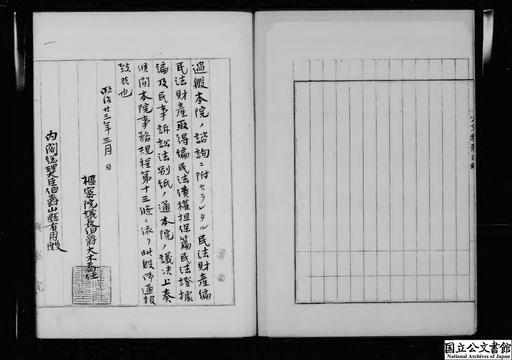 過般本院ノ諮詢ニ附セラレタル民法財産編
民法財産取得編民法債権担保篇民法證據
編及民事訴訟法別紙ノ通本院ノ議決上奏
候間本院事務規程第十三條ニ依リ此段及通報
候也
明治廿三年三月 日
枢密院議長伯爵大木喬任
内閣総理大臣伯爵山縣有朋殿
国立公文書館
National Archives of Japan